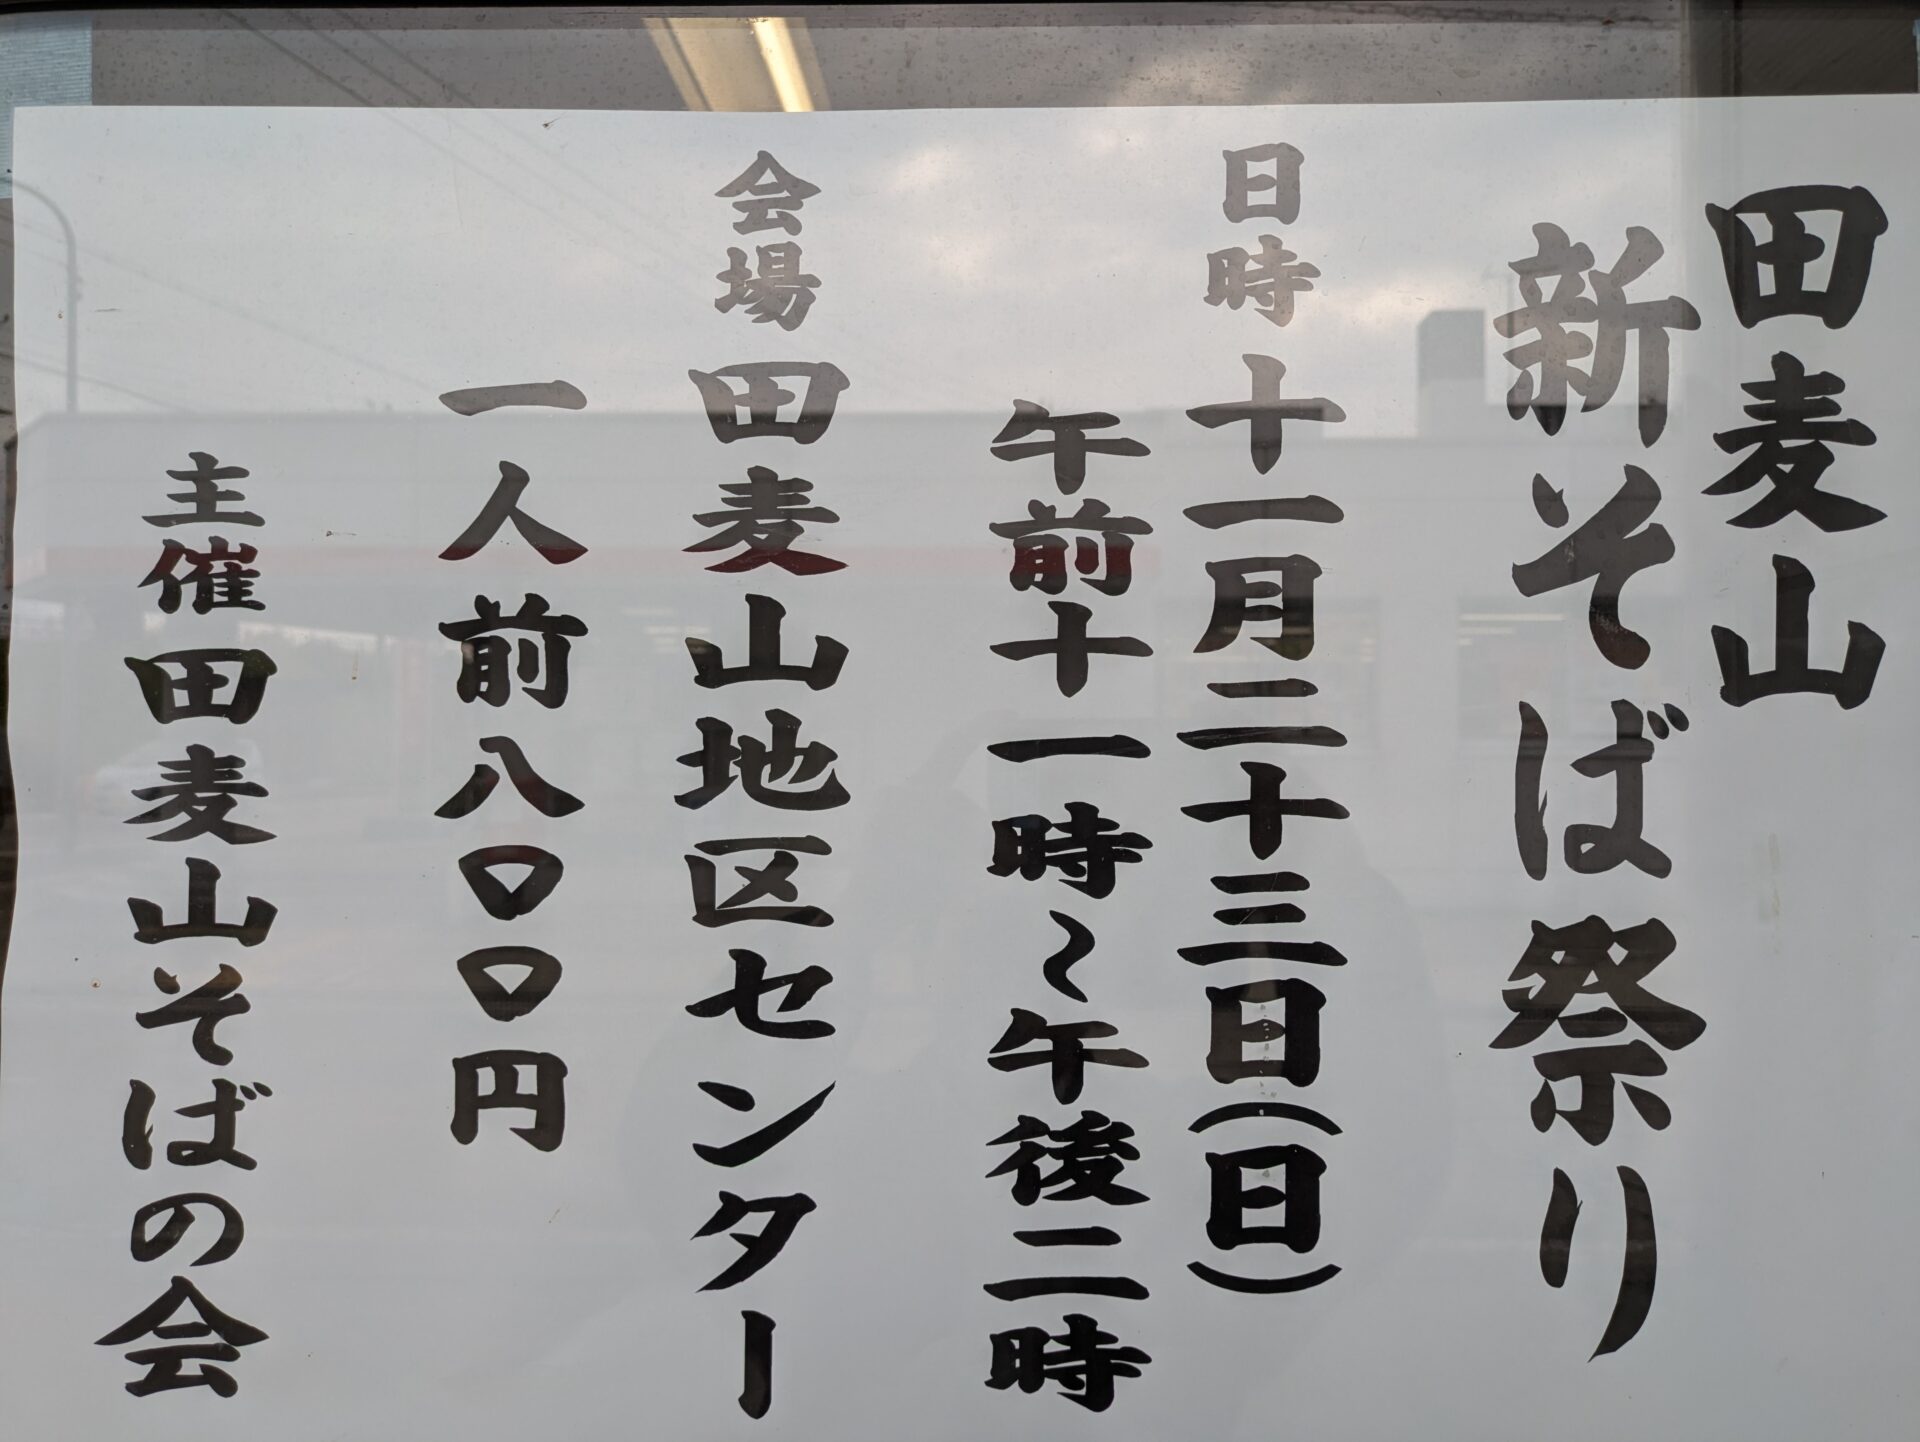 田麦山
新そば祭り
日時 十一月二十三日(日)
午前十一時～午後二時
会場 田麦山地区センター
一人前八〇〇円
主催 田麦山そばの会